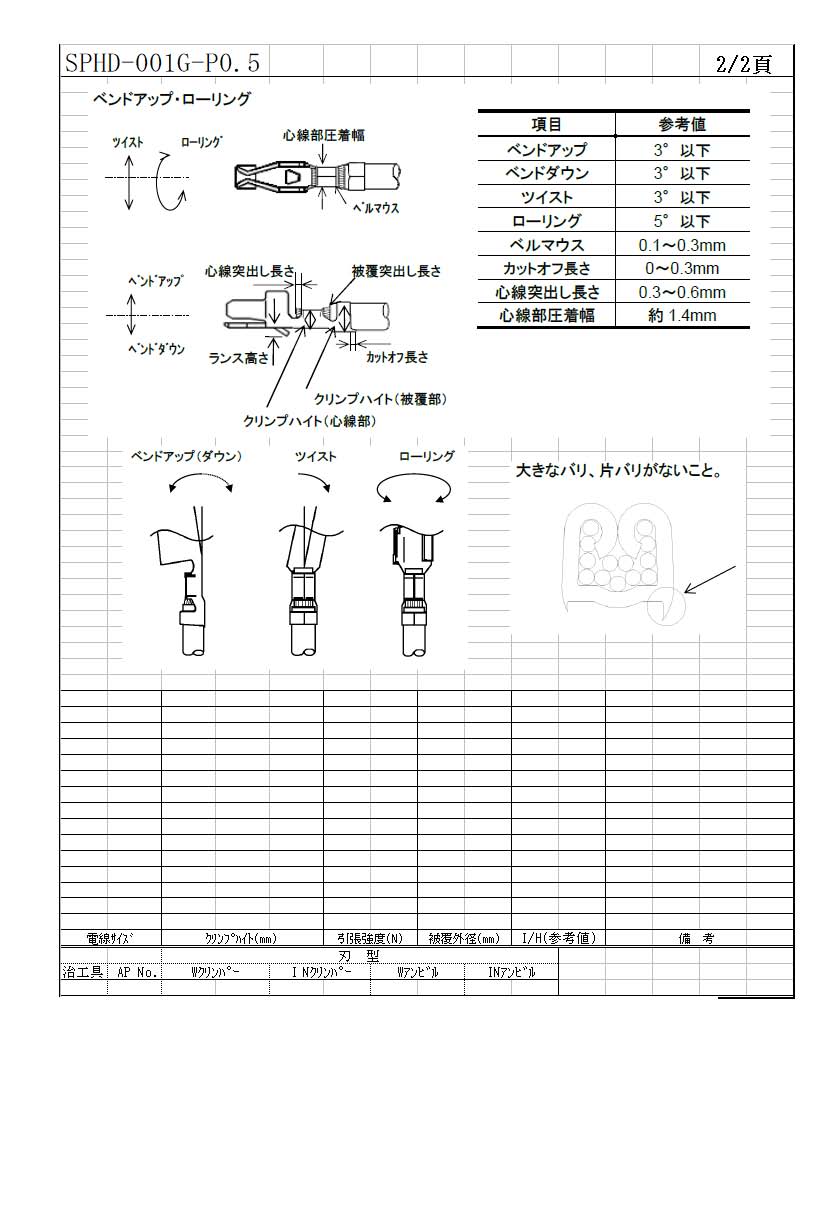 SPHD-001G-P0.5 2/2頁
ベンドアップ・ローリング
ﾂｲｽﾄ ﾛｰﾘﾝｸﾞ 心線部圧着幅
ﾍﾞﾙﾏｳｽ
項目 参考値
ベンドアップ 3° 以下
ベンドダウン 3° 以下
ツイスト 3° 以下
ローリング 5° 以下
ベルマウス 0.1～0.3mm
カットオフ長さ 0～0.3mm
心線突出し長さ 0.3～0.6mm
心線部圧着幅 約 1.4mm
心線突出し長さ 被覆突出し長さ
ﾍﾞﾝﾄﾞｱｯﾌﾟ
ﾍﾞﾝﾄﾞﾀﾞｳﾝ
ランス高さ ｶｯﾄｵﾌ長さ
クリンプハイト（被覆部）
クリンプハイト（心線部）
ベンドアップ（ダウン） ツイスト ローリング
大きなバリ、片バリがないこと。
電線ｻｲｽﾞ ｸﾘﾝﾌﾟﾊｲﾄ(mm) 引張強度(N) 被覆外径(mm) I/H(参考値) 備 考
刃 型
治工具 AP No. Wｸﾘﾝﾊﾟｰ I Nｸﾘﾝﾊﾟｰ Wｱﾝﾋﾞﾙ INｱﾝﾋﾞﾙ